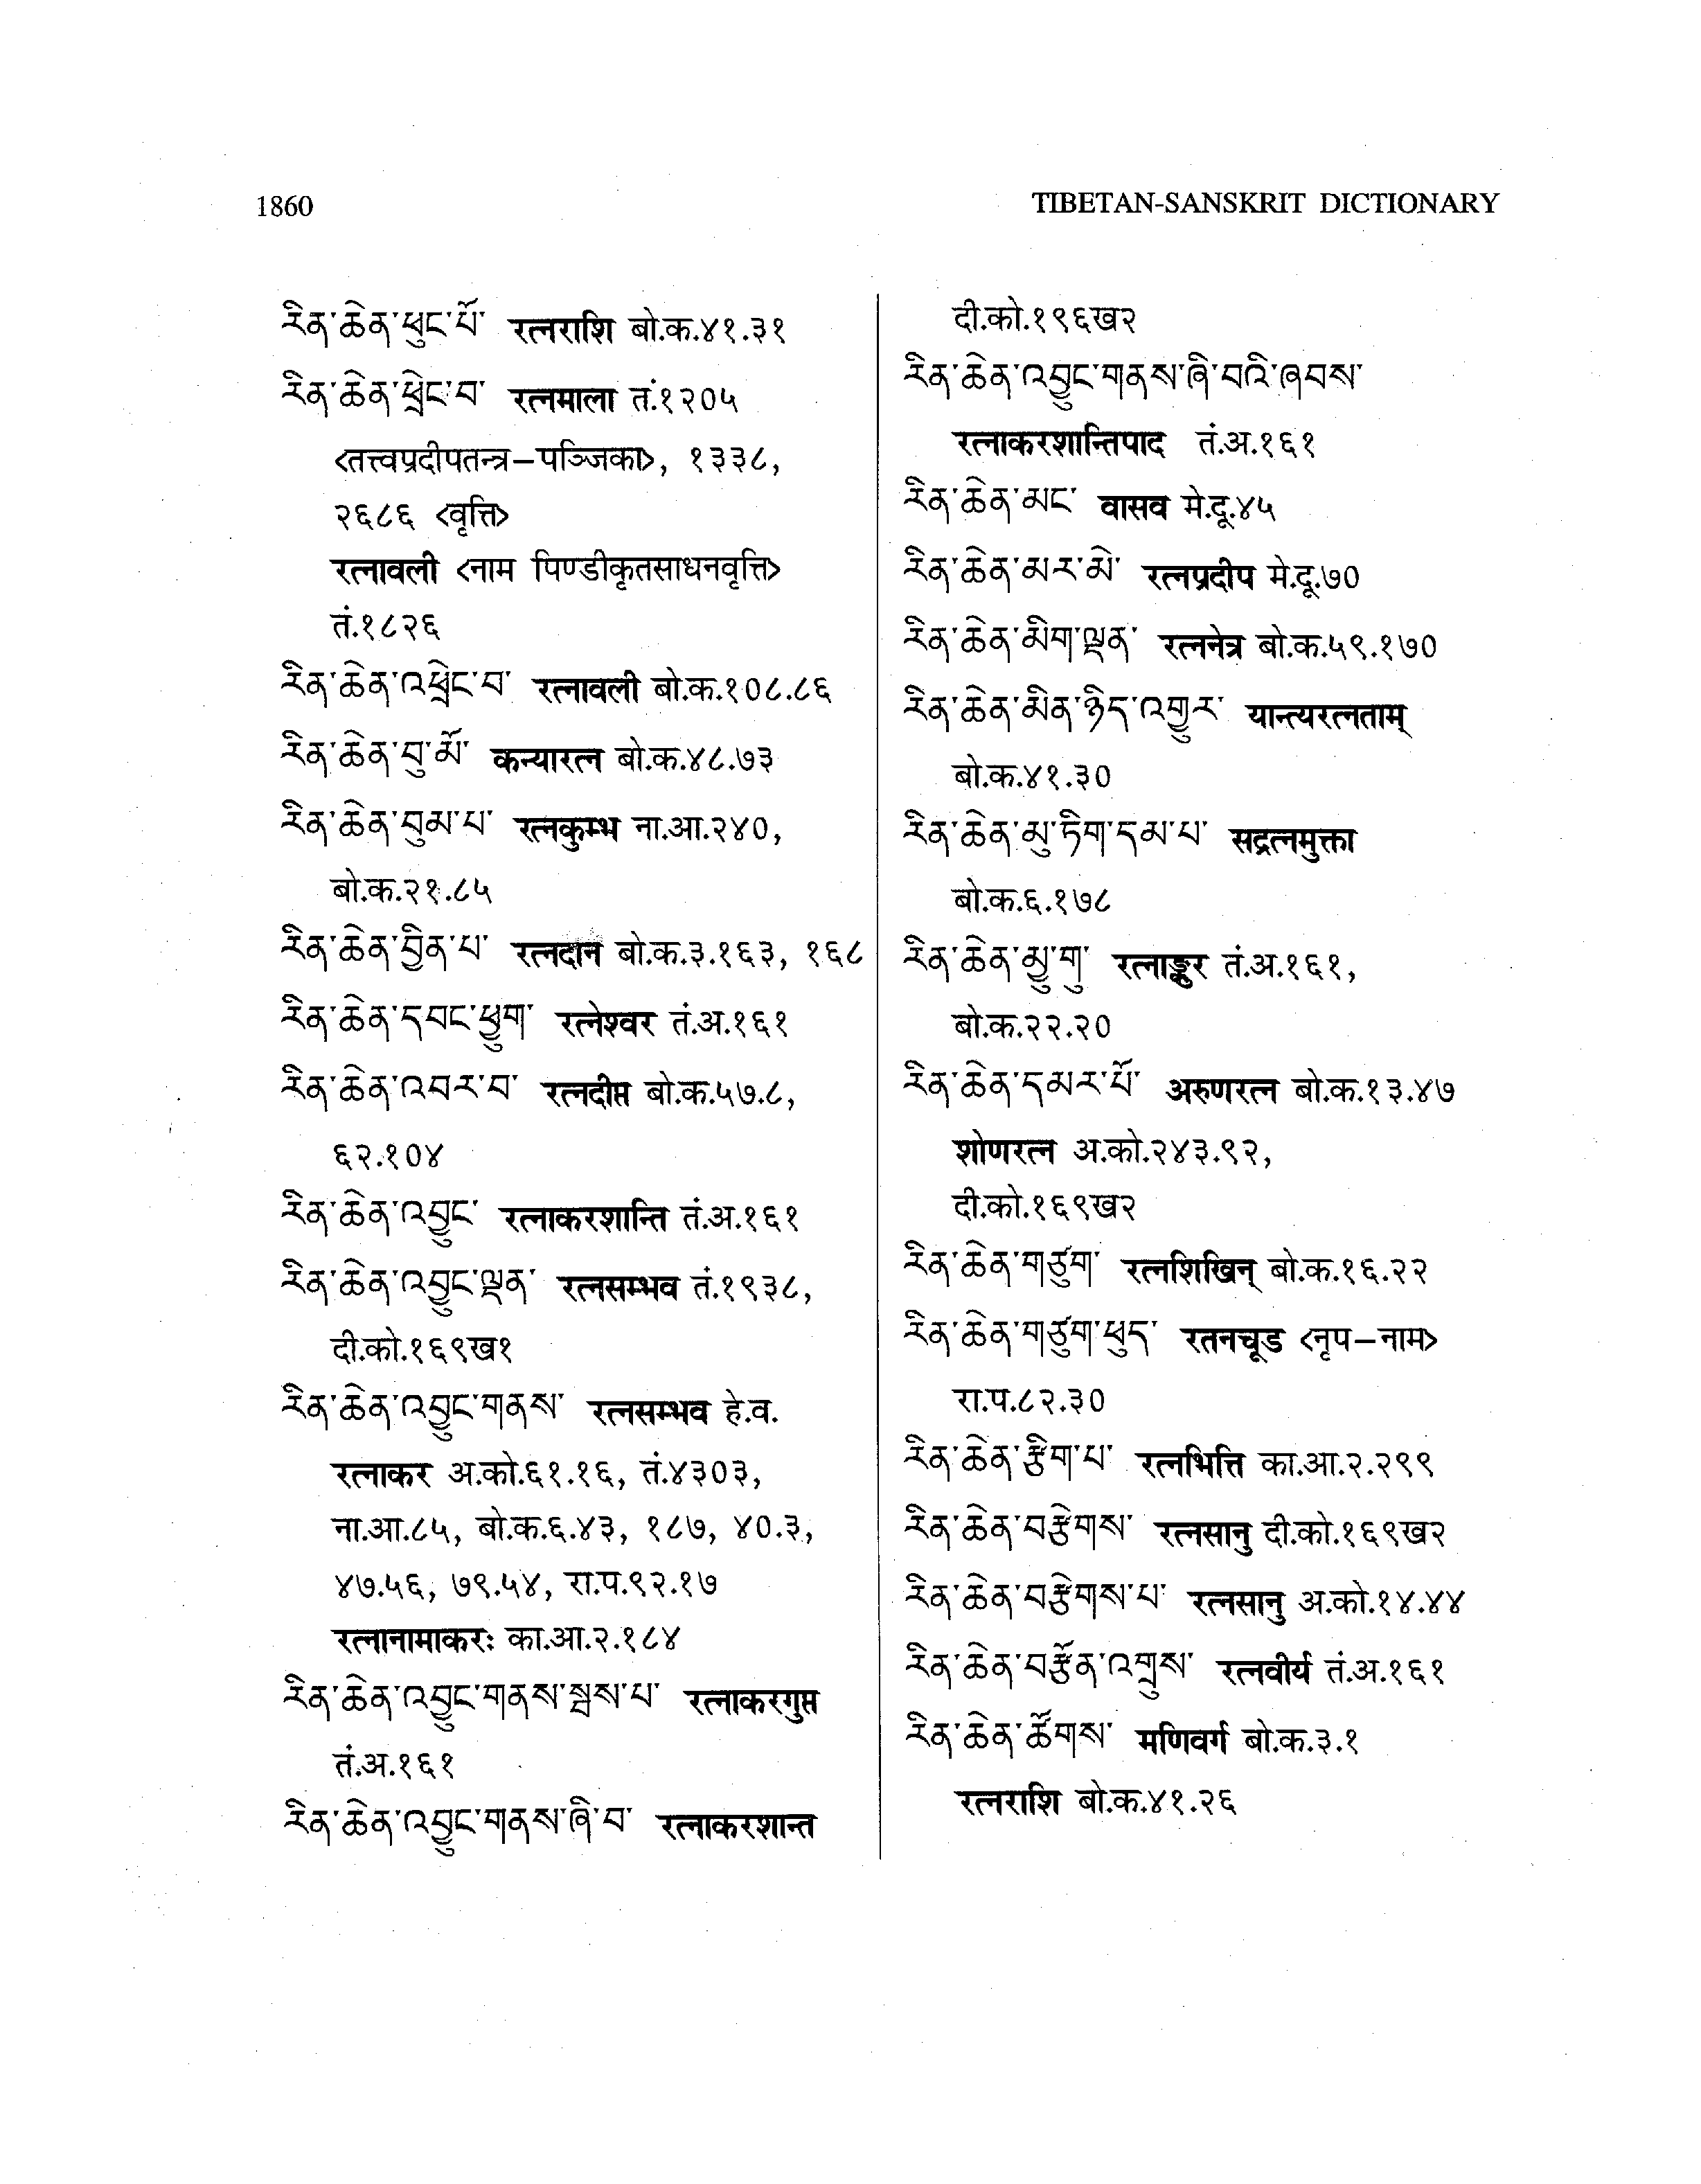 1860
TIBETAN-SANSKRIT DICTIONARY
རིན་ཆེན་ཕུང་པོ་ रत्नराशि बो.क.४१.३१
རིན་ཆེན་ཕྲེང་བ་ रत्नमाला तं.१२०५
<तत्त्वप्रदीपतन्त्र–पञ्जिका>, १३३८,
२६८६ <वृत्ति>
रत्नावली <नाम पिण्डीकृतसाधनवृत्ति>
तं.१८२६
རིན་ཆེན་འཕྲེང་བ་ रत्नावली बो.क.१०८.८६
རིན་ཆེན་བུ་མོ་ कन्यारत्न बो.क.४८.७३
རིན་ཆེན་བུམ་པ་ रत्नकुम्भ ना.आ.२४०,
बो.क.२१.८५
རིན་ཆེན་བྱིན་པ་ रत्नदान बो.क.३.१६३, १६८
རིན་ཆེན་དབང་ཕྱུག་ रत्नेश्वर तं.अ.१६१
རིན་ཆེན་འབར་བ་ रत्नदीप्त बो.क.५७.८,
६२.१०४
རིན་ཆེན་འབྱུང་ रत्नाकरशान्ति तं.अ.१६१
རིན་ཆེན་འབྱུང་ལྡན་ रत्नसम्भव तं.१९३८,
दी.को.१६९ख१
རིན་ཆེན་འབྱུང་གནས་ रत्नसम्भव हे.व.
रत्नाकर अ.को.६१.१६, तं.४३०३,
ना.आ.८५, बो.क.६.४३, १८७, ४०.३,
४७.५६, ७९.५४, रा.प.९२.१७
रत्नानामाकरः का.आ.२.१८४
རིན་ཆེན་འབྱུང་གནས་སྦས་པ་ रत्नाकरगुप्त
तं.अ.१६१
རིན་ཆེན་འབྱུང་གནས་ཞི་བ་ रत्नाकरशान्त
दी.को.१९६ख२
རིན་ཆེན་འབྱུང་གནས་ཞི་བའི་ཞབས་
रत्नाकरशान्तिपाद तं.अ.१६१
རིན་ཆེན་མང་ वासव मे.दू.४५
རིན་ཆེན་མར་མེ་ रत्नप्रदीप मे.दू.७०
རིན་ཆེན་མིག་ལྡན་ रत्ननेत्र बो.क.५९.१७०
རིན་ཆེན་མིན་ཉིད་འགྱུར་ यान्त्यरत्नताम्
बो.क.४१.३०
རིན་ཆེན་མུ་ཏིག་དམ་པ་ सद्रत्नमुक्ता
बो.क.६.१७८
རིན་ཆེན་མྱུ་གུ་ रत्नाङ्कुर तं.अ.१६१,
बो.क.२२.२०
རིན་ཆེན་དམར་པོ་ अरुणरत्न बो.क.१३.४७
शोणरत्न अ.को.२४३.९२,
दी.को.१६९ख२
རིན་ཆེན་གཙུག་ रत्नशिखिन् बो.क.१६.२२
རིན་ཆེན་གཙུག་ཕུད་ रतनचूड <नृप–नाम>
रा.प.८२.३०
རིན་ཆེན་རྩིག་པ་ रत्नभित्ति का.आ.२.२९९
རིན་ཆེན་བརྩེགས་ रत्नसानु दी.को.१६९ख२
རིན་ཆེན་བརྩེགས་པ་ रत्नसानु अ.को.१४.४४
རིན་ཆེན་བརྩོན་འགྲུས་ रत्नवीर्य तं.अ.१६१
རིན་ཆེན་ཚོགས་ मणिवर्ग बो.क.३.१
रत्नराशि बो.क.४१.२६